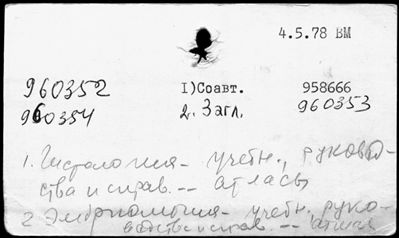 4.5.78 ВМ
960352 I)Соавт. 958666
960354 2. Загл. 960353
1. Гистология - учебн., руковод-
ства и справ. -- атласы
2. Эмбриология - учебн. руко-
водства и справ. -- атласы